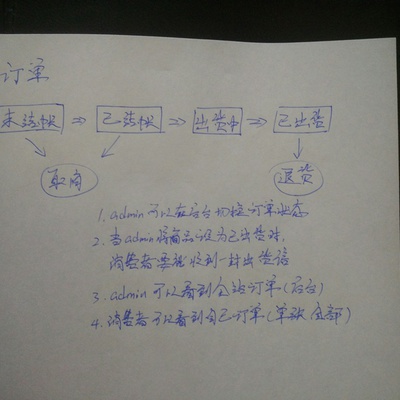 订单
未结帐 ⇒ 已结帐 ⇒ 出货中 ⇒ 已出货
取消 退货
1. admin 可以在后台切换订单状态
2. 当admin将商品设为已出货时,
消费者要能收到一封出货信
3. admin可以看到全站订单(后台)
4. 消费者可以看到自己订单(单张 全部)